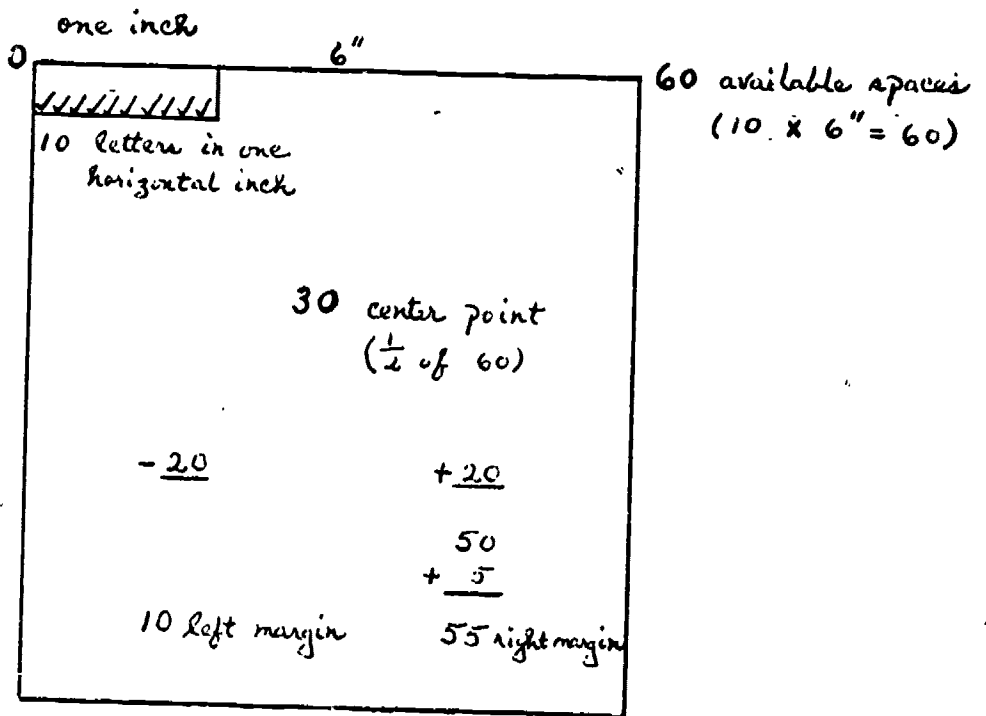 one inch
0 6"
60 available spaces
(10 x 6" = 60)
10 letters in one
horizontal inch
30 center point
(1/2 of 60)
- 20 + 20
50
+ 5
10 left margin 55 right margin